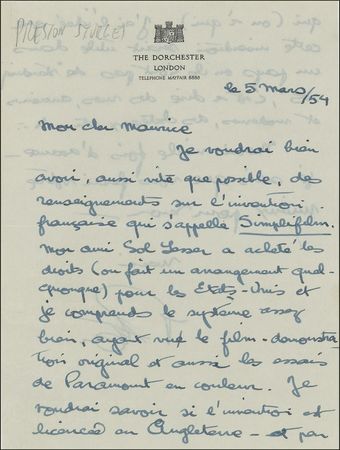 PRESTON STURGES
THE DORCHESTER
LONDON
TELEPHONE MAYFAIR 8888
le 5 Mars/54
Mon cher Maurice
Je voudrai bien
avoir, aussi vite que possible, des
renseignements sur l'invention
française qui s'appelle Simplifilm.
Mon ami Sol Lesser a acheté les
droits (ou fait un arrangement quel-
quonque) pour les Etats-Unis et
je comprends le système assez
bien, ayant vue le film-demonstra-
tion original et aussi les essais
de Paramount en couleur. Je
voudrai savoir si l'invention est
licencée en Angleterre - et par